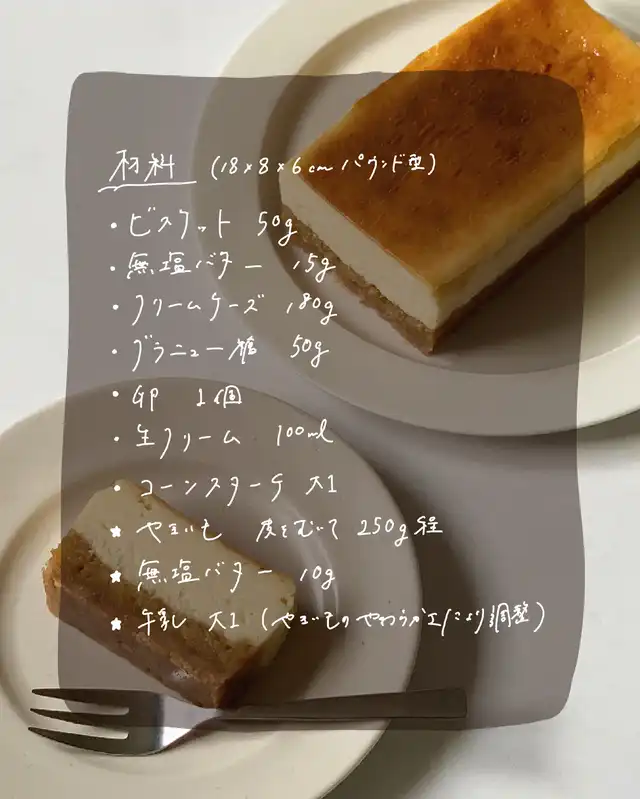 材料 (18×8×6cm パウンド型)
・ビスケット 50g
・無塩バター 15g
・クリームチーズ 180g
・グラニュー糖 50g
・卵 1個
・生クリーム 100ml
・コーンスターチ 大1
★ やきいも 皮をむいて 250g程
★ 無塩バター 10g
★ 牛乳 大1 (やきいものやわらかさにより調整)